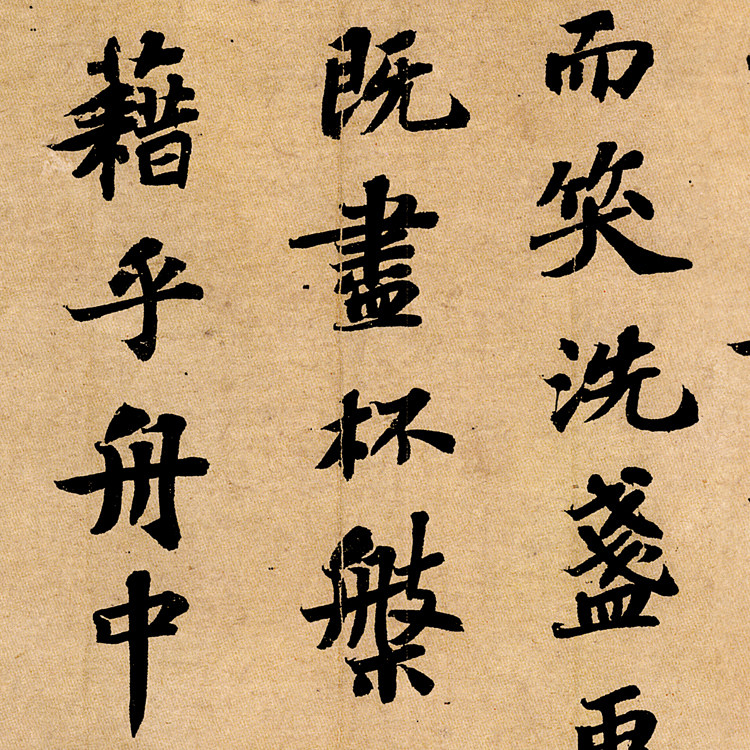 而笑洗盞更
既盡杯槃
藉乎舟中